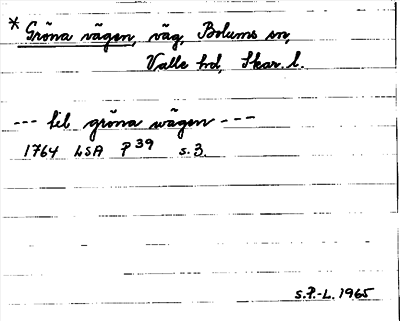 * Gröna vägen, väg, Bolums sn,
Valle hd, Skar. l.
--- til gröna wägen ---
1764 LSA P 39 s. 3.
S.P.-L. 1965